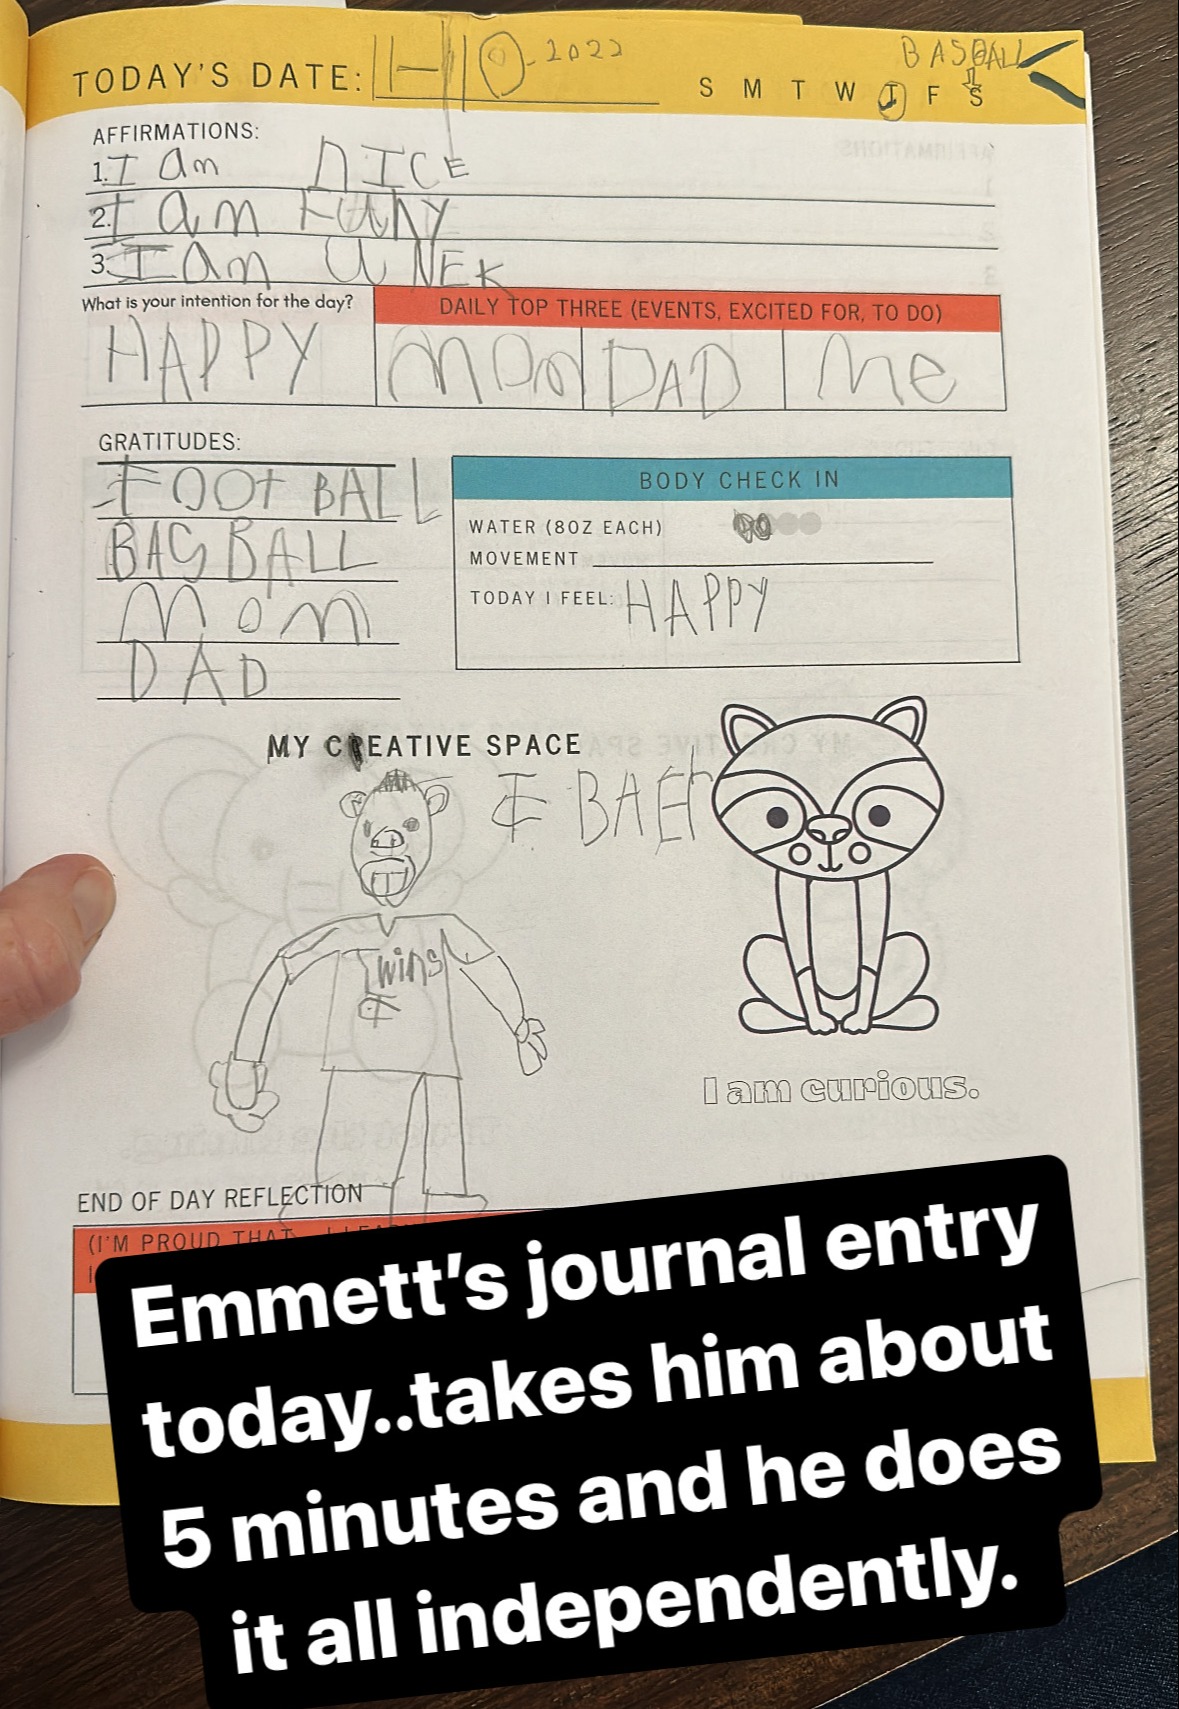 BASEBALL
TODAY'S DATE: 11-10-2022 S M T W T F S
AFFIRMATIONS:
1. I am NICE
2. I am FUNY
3. I am UNEK
What is your intention for the day?
HAPPY
DAILY TOP THREE (EVENTS, EXCITED FOR, TO DO)
MOM DAD Me
GRATITUDES:
FOOt BALL
BASBALL
MOM
DAD
BODY CHECK IN
WATER (8OZ EACH)
MOVEMENT
TODAY I FEEL: HAPPY
MY CREATIVE SPACE
Twins
I am curious.
END OF DAY REFLECTION
(I'M PROUD THAT
Emmett's journal entry
today..takes him about
5 minutes and he does
it all independently.